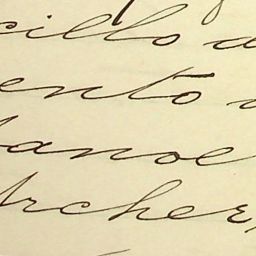 cillo a
ento a
anoe
Archer,